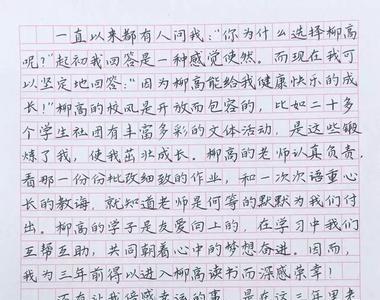 一直以来都有人问我:"你为什么选择柳高
呢?"起初我回答是一种感觉使然。而现在我可
以坚定地回答:"因为柳高能给我健康快乐的成
长!"柳高的校风是开放而包容的,比如二十多
个学生社团有丰富多彩的文体活动,是这些锻
炼了我,使我茁壮成长。柳高的老师认真负责,
看那一份份批改细致的作业,和一次次语重心
长的教诲,就知道老师是何等的默默为我们付
出。柳高的学子是友爱向上的,在学习中我们
互帮互助,共同朝着心中的梦想奋进。因而,
我为三年前得以进入柳高读书而深感荣幸!
还有让我倍感幸运的事,是在这三年里老